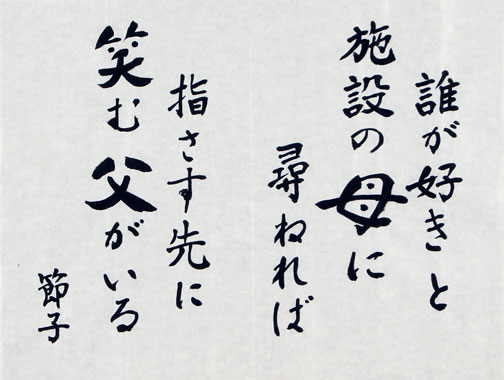 誰が好きと
施設の母に
尋ねれば
指さす先に
笑む父がいる
節子